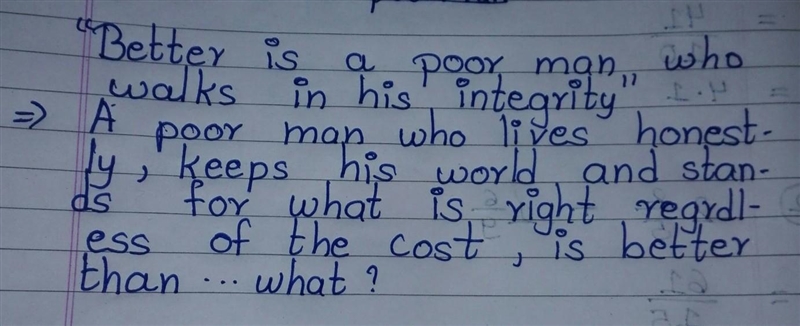 "Better is a poor man who
walks in his integrity"
⇒ A poor man who lives honest-
ly, keeps his world and stan-
ds for what is right regrdl-
ess of the cost, is better
than ... what?